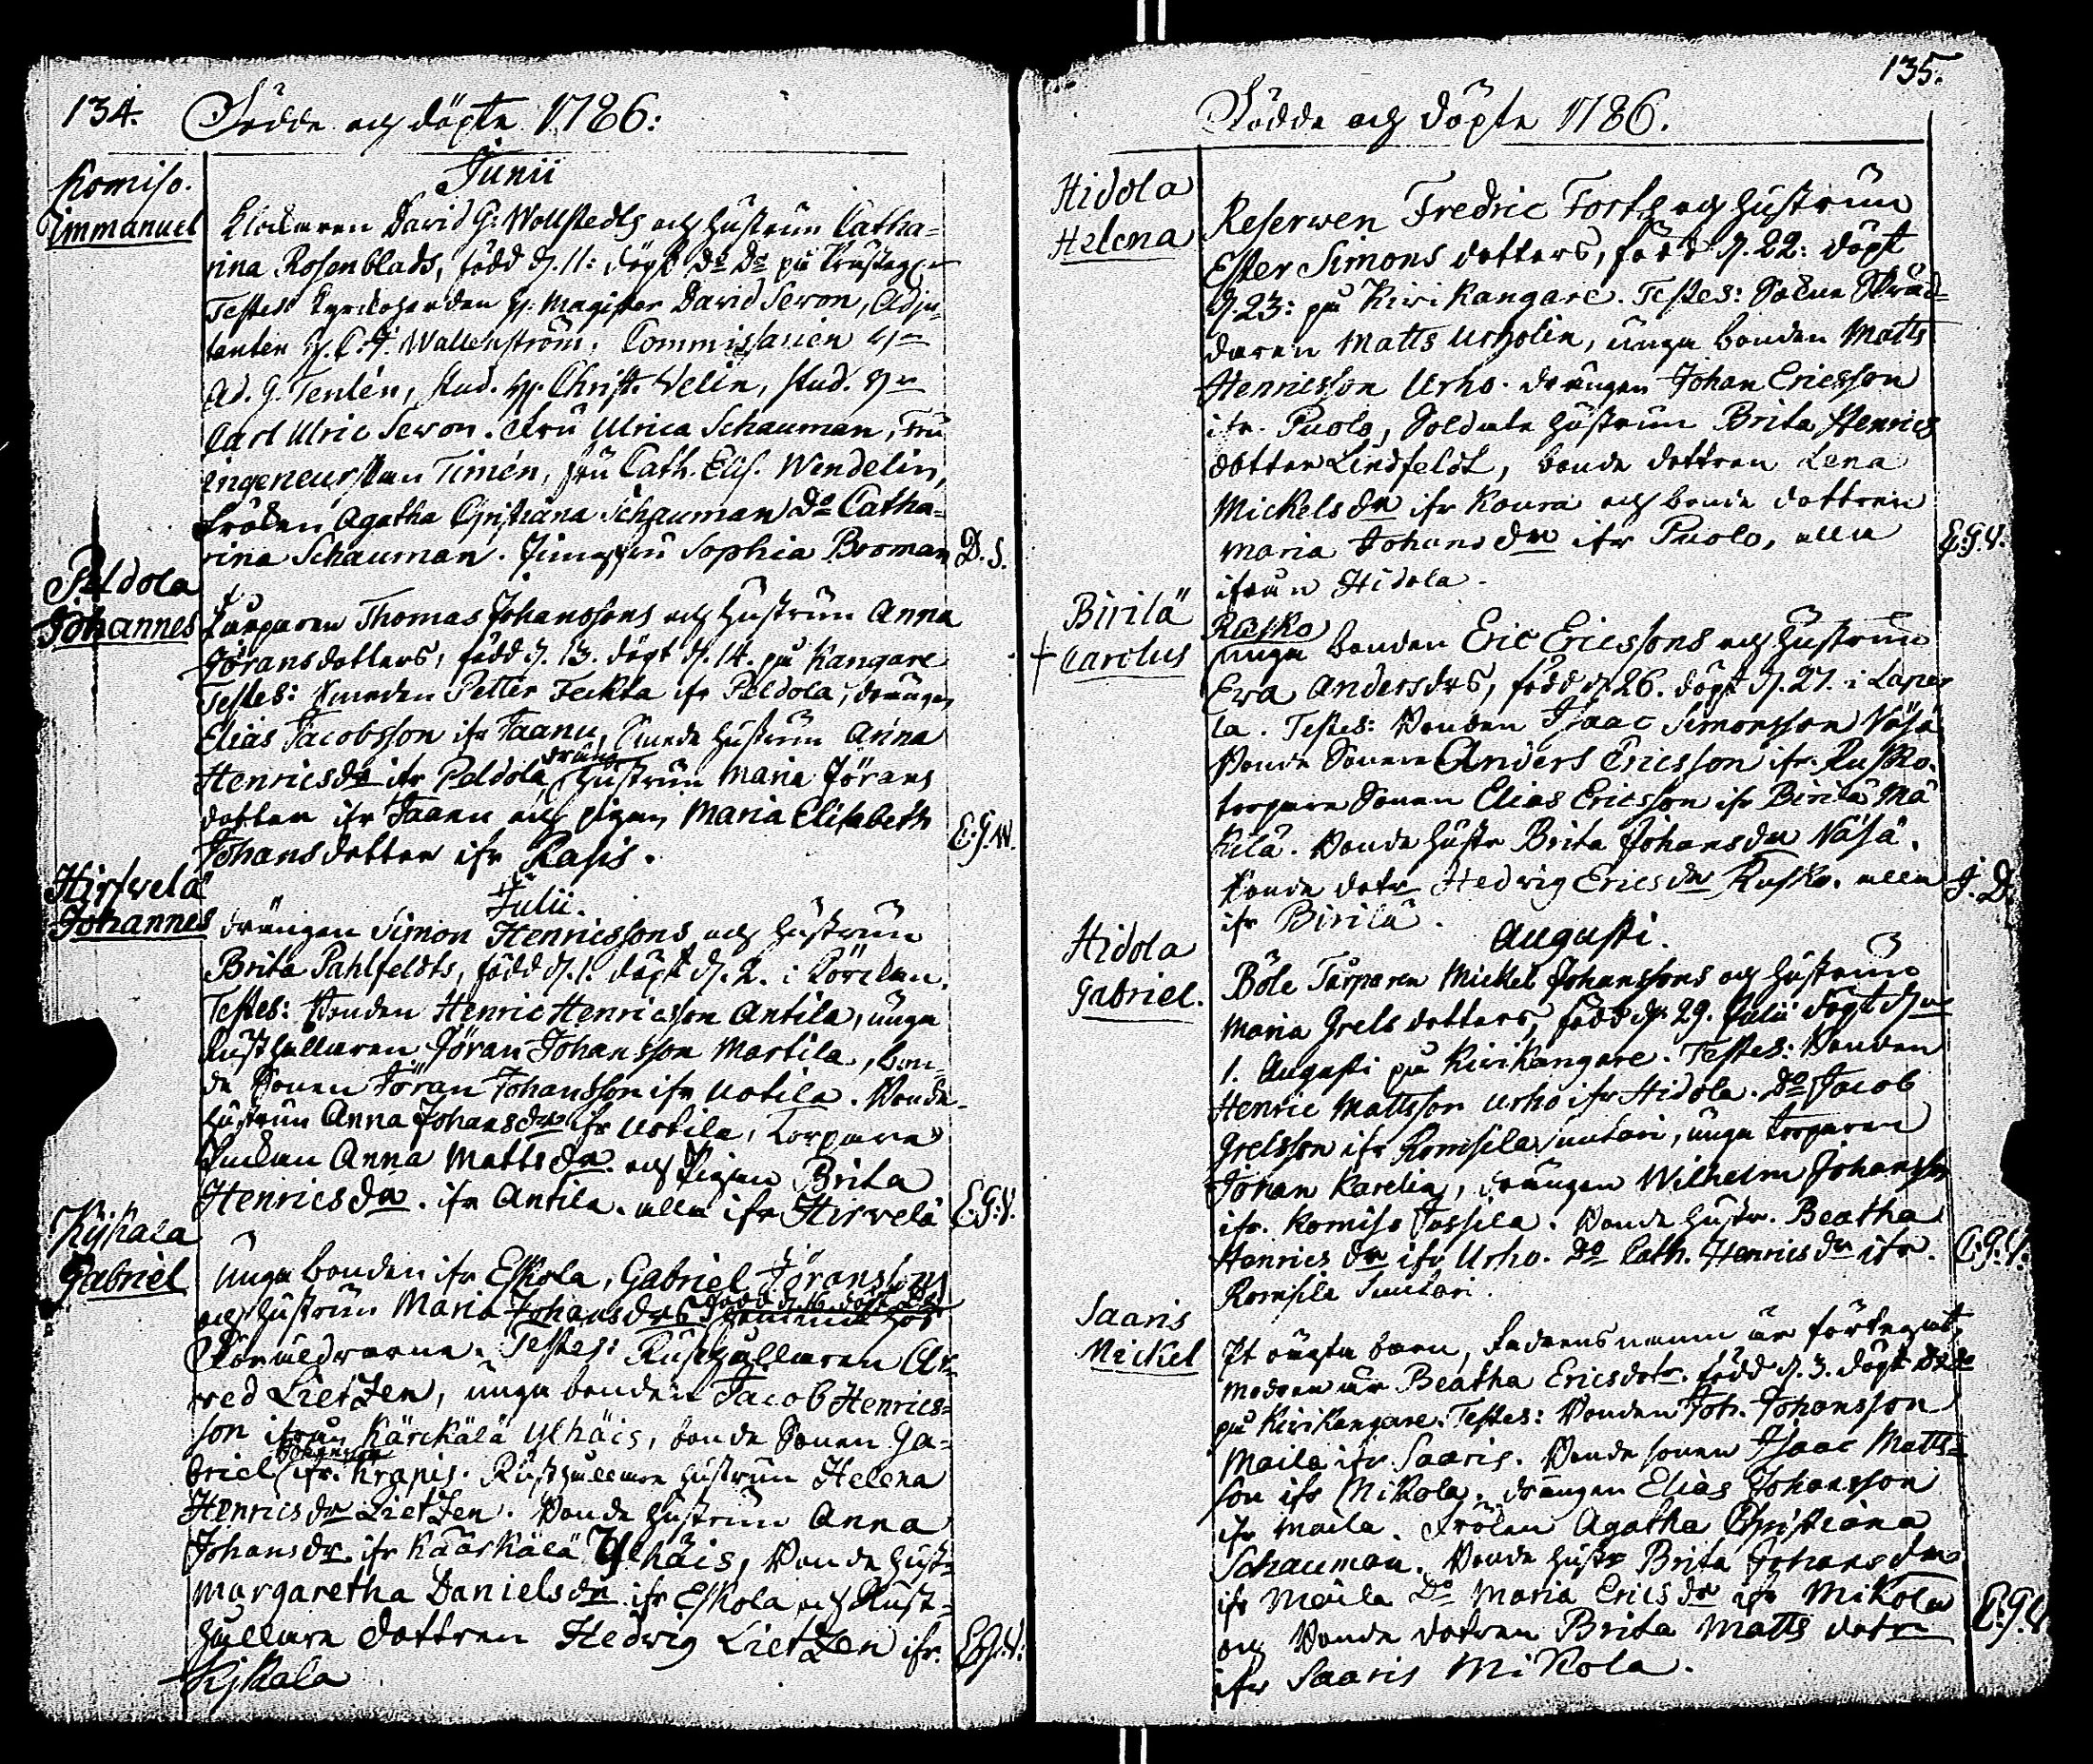 134.
Födde och döpte 1786:
Junii
Komiso.
Immanuel
Klockaren David G: Wollstedts och hustrun Catha-
rina Rosenblads, född d. 11: döpt Do Do på
Testes Kyrkoherden H. Magister David Sevon, Adju-
tanten H. C. F. Wallenström, Commissarien Hr
Ad. G. Tenlén, stud. H. Christ. Welin, stud. Hr
Carl Ulric Sevon. Fru Ulrica Schauman, Fru
ingeneurskan Timén, fru Cath. Elis. Wendelin,
Fröken Agatha Christiana Schauman Do Catha-
rina Schauman. Jungfru Sophia Broman D. S.
Peldola
Johannes
Torparen Thomas Johanssons och hustrun Anna
Göransdotters, född d. 13. döpt d. 14. på Kangare
Testes: Smeden Petter Feckta ifr Peldola, drängen
Elias Jacobsson ifr Taanu, Smeds hustrun Anna
Henricsdr ifr Peldola, drängs hustrun Maria Jörans
dotter ifr Taanu och pigan Maria Elisabeth
Johansdotter ifr Rasis. E. G. W.
Julii.
Hirfvelä
Johannes
Drängen Simon Henricssons och hustrun
Brita Pahlfeldts, född d. 1. döpt d. 2. i
Testes: Bonden Henric Henricsson Antila, unga
Rusthållaren Jöran Johansson Martila, bon-
de Sonen Jöran Johansson ifr Uotila. Bonde-
hustrun Anna Johansdr ifr Uotila, Torpare
Enkan Anna Mattsdr. och Pigan Brita
Henricsdr. ifr Antila. alla ifr Hirvelä E. G. V.
Kijkala
Gabriel
Unga bonden ifr Eskola, Gabriel Jöranssons
född d. 16. döpt
och hustrun Maria Johansdrs hos
Föräldrarna. Testes: Rusthållaren Ar-
wed Lietzen, unga bonden Jacob Henrics-
son ifrån Kärckälä Ylhäis, bonde Sonen Ga-
briel Johansson ifr. Krapis. Rusthållare hustrun Helena
Henricsdr Lietzen. Bonde hustrun Anna
Johansdr ifr Käärkälä Ylhäis, Bonde hust-
Margaretha Danielsdr ifr Eskola och Rust-
hållare dottren Hedwig Lietzen ifr. E. G. V.
Kijkala
135.
Födde och döpte 1786.
Hidola
Helena
Reserwen Fredric Forss och hustrun
Ester Simons dotters, född d. 22: döpt
d. 23: på Kirikangare. Testes: Sockne Skräd-
daren Matts Urholin, unga bonden Matts
Henricsson Urho. drängen Johan Ericsson
ifr. Puolo, Soldate hustrun Brita Henrics
dotter Lindfeldt, bonde dottren Lena
Mickelsdr ifr Koura och bonde dottren
Maria Johansdr ifr Puolo, alla
ifrån Hidola. E. G. V.
Birilä
+ Carolus
Rasko
unga bonden Eric Ericssons och hustrun
Eva Andersdrs, född d. 26. döpt d. 27. i Laper
la. Testes: Bonden Isaac Simonsson Näsä
Bonde Sonen Anders Ericsson ifr. Rusko.
torpare Sonen Elias Ericsson ifr Birilä Mä
kilä. Bonde hustr Brita Johansdr Näsä.
Bonde dotr Hedwig Ericsdr Rusko. alla J. D.
ifr Birilä.
Augusti.
Hidola
Gabriel.
Böle Torparen Mickel Johanssons och hustrun
Maria Grels dotters, född d. 29. Julii döpt den
1. Augusti på Kirikangare. Testes: Bonden
Henric Mattsson Urho ifr Hidola. Do Jacob
Grelsson ifr Romsila Suutari, unga torparen
Johan Karelin, drängen Wilhelm Johansson
ifr. Komiso Jossila. Bonde hustr. Beatha
Henricsdr ifr Urho. Do Cath. Henricsdr ifr. E. G. V.
Romsila Suutari.
Saaris
Mickel
It oägta barn, Fadrens namn är förtegat,
modren är Beatha Ericsdotr. född d. 3. döpt Do do
på Kirikangare. Testes: Bonden Joh. Johansson
Maila ifr. Saaris. Bonde sonen Isaac Matts-
son ifr Mikola, drängen Elias Johansson
ifr Maila. Fröken Agatha Christiana
Schauman. Bonde hustr Brita Johansdr
ifr Maila Do Maria Ericsdr ifr Mikola
och Bonde dottren Brita Matts dotr E. G. V.
ifr Saaris Mikola.